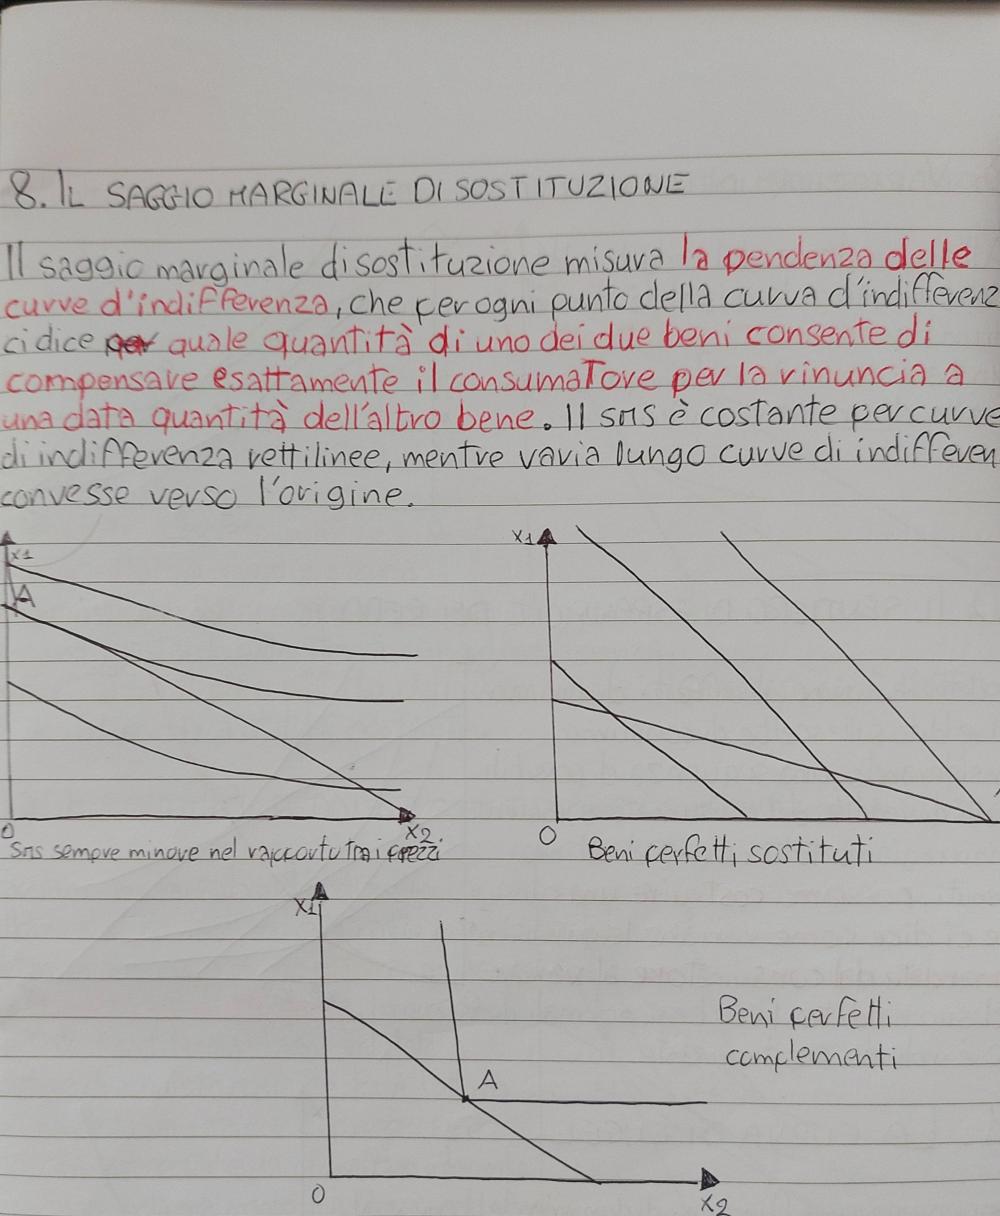 8. IL SAGGIO MARGINALE DI SOSTITUZIONE
Il saggio marginale di sostituzione misura la pendenza delle
curve d'indifferenza, che per ogni punto della curva d'indifferenz
ci dice quale quantità di uno dei due beni consente di
compensare esattamente il consumatore per la rinuncia a
una data quantità dell'altro bene. Il sms è costante per curve
di indifferenza rettilinee, mentre varia lungo curve di indifferen
convesse verso l'origine.
x1
A
0
x2
Sms sempre minore nel rapporto tra i prezzi
x1
0
Beni perfetti sostituti
x1
A
0
x2
Beni perfetti
complementi